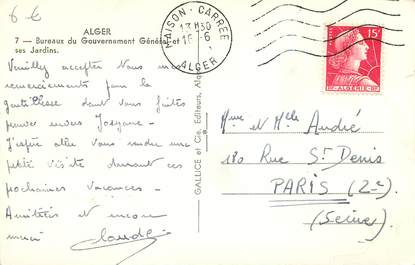 6 €
ALGER
7 — Bureaux du Gouvernement Général et
ses Jardins.
Veuillez accepter tous mes
remerciements pour la
gentillesse dont vous faites
preuve envers Josyane.
J'espère aller vous rendre une
petite visite durant ces
prochaines vacances.
Amitiés et encore
merci Claude
GALLICE et Cie, Editeurs, Alger
MAISON-CARRÉE
13H30
16-6
ALGER
15F
ALGERIE
Mme et Melle André
180 Rue St Denis
PARIS (2e)
(Seine)